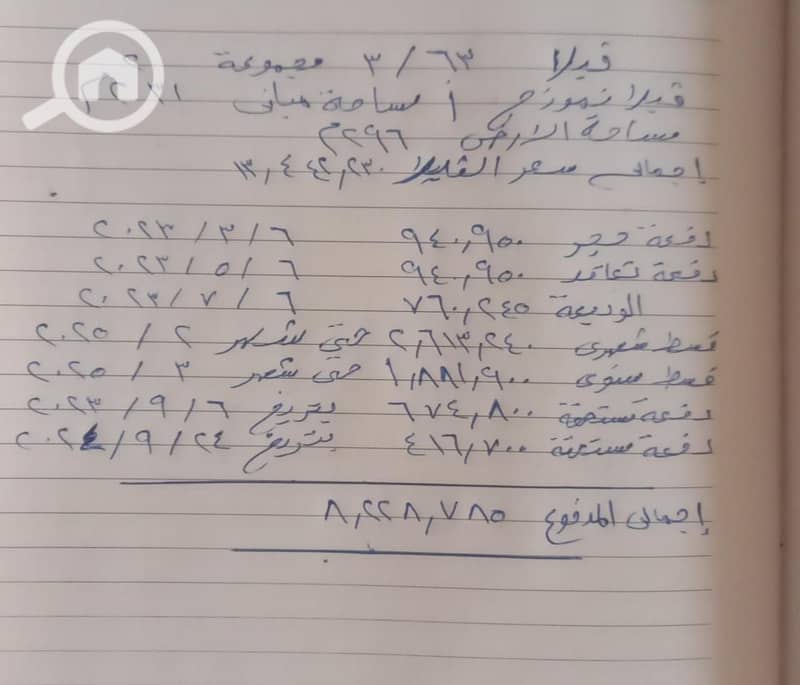 فيلا ٦٣ / ٣ مجموعة
فيلا نموزج أ مساحة مبانى ٢٣١م
مساحة الارض ٢٩٦م
إجمالى سعر الفيلا ١٣,٤٤٢,٢٣٠
دفعة حجز ٩٤٠,٩٥٠ ٦ / ٣ / ٢٠٢٣
دفعة تعاقد ٩٤٠,٩٥٠ ٦ / ٥ / ٢٠٢٣
الوديعة ٧٦٠,٢٤٥ ٦ / ٧ / ٢٠٢٣
قسط شهرى ٢,٦١٣,٢٤٠ حتى شهر ٢ / ٢٠٢٥
قسط سنوى ١,٨٨١,٩٠٠ حتى شهر ٣ / ٢٠٢٥
دفعة مستحقة ٦٧٤,٨٠٠ بتريخ ٦ / ٩ / ٢٠٢٣
دفعة مستحقة ٤١٦,٧٠٠ بتريخ ٢٤ / ٩ / ٢٠٢٤
إجمالى المدفوع ٨,٢٢٨,٧٨٥